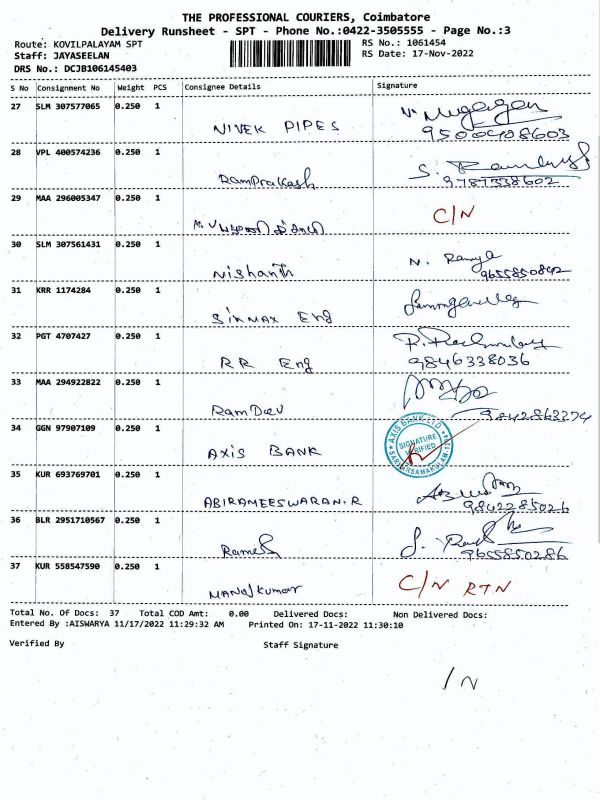 THE PROFESSIONAL COURIERS, Coimbatore
Delivery Runsheet - SPT - Phone No.:0422-3505555 - Page No.:3
Route: KOVILPALAYAM SPT RS No.: 1061454
Staff: JAYASEELAN RS Date: 17-Nov-2022
DRS No.: DCJB106145403
S No Consignment No Weight PCS Consignee Details Signature
27 SLM 307577065 0.250 1
NIVEK PIPES 9500408603
28 VPL 400574236 0.250 1
RamPrakash 9787338602
29 MAA 296005347 0.250 1 C/N
30 SLM 307561431 0.250 1
Nishanth N. Ramya 9655850842
31 KRR 1174284 0.250 1
SIKMAX Eng
32 PGT 4707427 0.250 1
RR Eng 9846338036
33 MAA 294922822 0.250 1
RamDev 9842863274
34 GGN 97907109 0.250 1
AXIS BANK AXIS BANK LTD SIGNATURE VERIFIED
35 KUR 693769701 0.250 1
ABIRAMEESWARAN.R 9842285026
36 BLR 2951710567 0.250 1
Ramesh 9655850286
37 KUR 558547590 0.250 1
MANOJKUMAR C/N RTN
Total No. Of Docs: 37 Total COD Amt: 0.00 Delivered Docs: Non Delivered Docs:
Entered By :AISWARYA 11/17/2022 11:29:32 AM Printed On: 17-11-2022 11:30:10
Verified By Staff Signature
/N